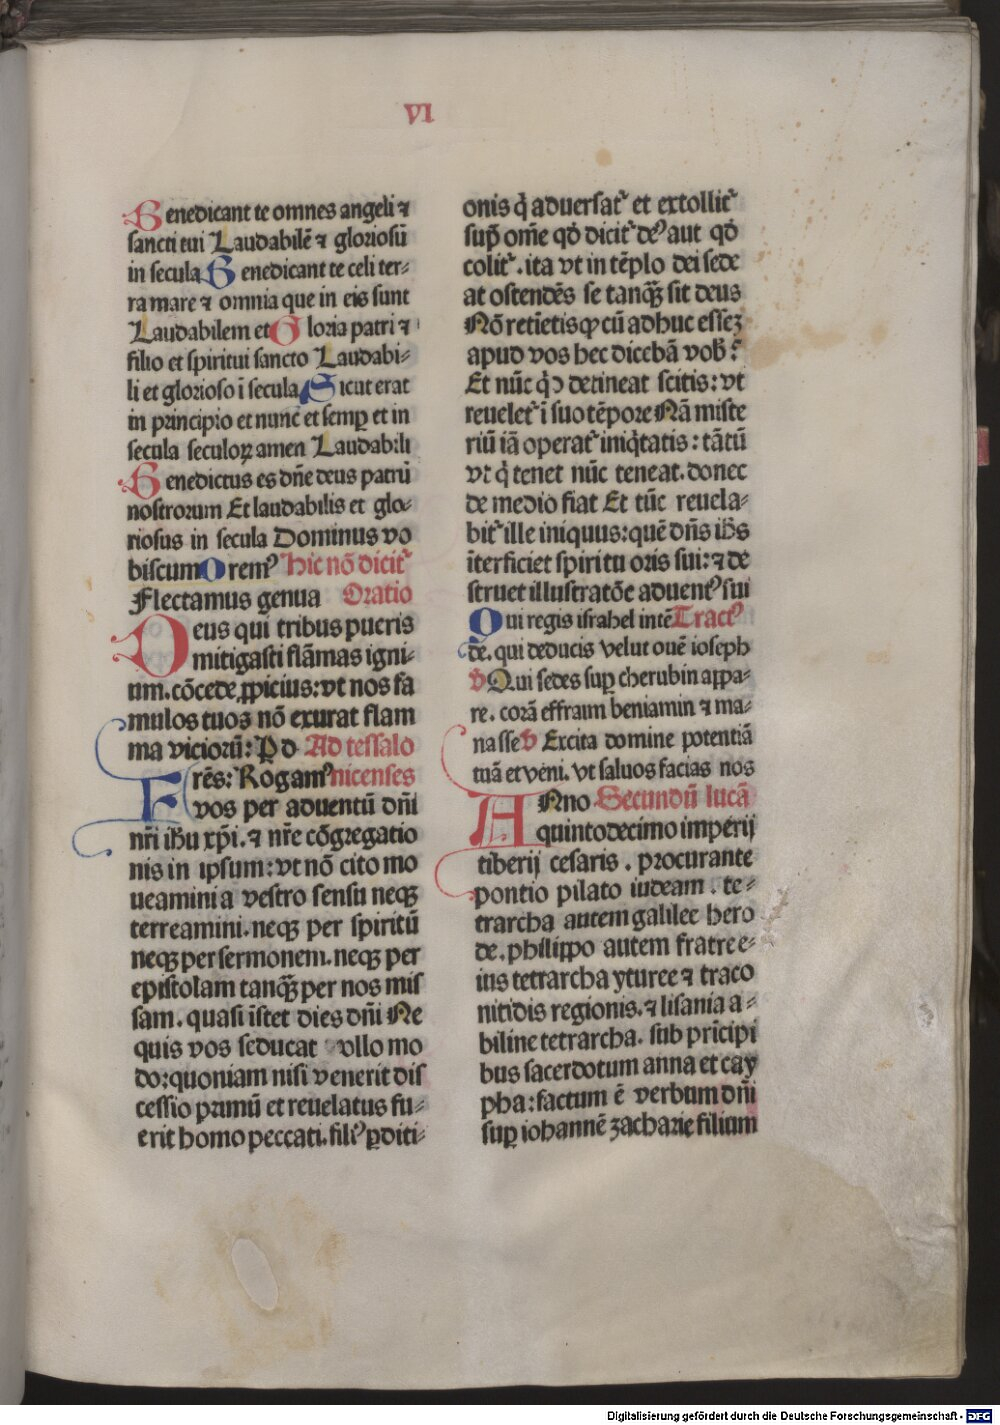 VI
Benedicant te omnes angeli ⁊
sancti tui Laudabilē ⁊ gloriosū
in secula Benedicant te celi ter⸗
ra mare ⁊ omnia que in eis sunt
Laudabilem et Gloria patri ⁊
filio et spiritui sancto Laudabi⸗
li et glorioso ī secula Sicut erat
in principio et nunc et semꝑ et in
secula seculoꝝ amen Laudabili
Benedictus es dn̄e deus patrū
nostrorum Et laudabilis et glo⸗
riosus in secula Dominus vo
biscum Oremꝰ Hic nō dicit᷑
Flectamus genua Oratio
Deus qui tribus pueris
mitigasti flāmas igni⸗
um. cōcede ꝓpicius: vt nos fa
mulos tuos nō exurat flam
ma viciorū: P d Ad tessalo
Frēs: Rogamꝰ nicenses
vos per aduentū dn̄i
nr̄i ihū xp̄i. ⁊ nr̄e cōgregatio
nis in ipsum: vt nō cito mo
ueamini a vestro sensu neqꝫ
terreamini. neqꝫ per spiritū
neqꝫ per sermonem. neqꝫ per
epistolam tanqꝫ̄ per nos mis
sam. quasi īstet dies dn̄i Ne
quis vos seducat vllo mo
do: quoniam nisi venerit dis
cessio primū et reuelatus fu⸗
erit homo peccati. filiꝰ ꝑditi⸗
onis q̇ aduersat᷑ et extollit᷑
sup̄ om̄e qd̄ dicit᷑ deꝰ aut qd̄
colit᷑. ita vt in tēplo dei sede
at ostendēs se tanqꝫ̄ sit deus
Nō retīetis ꝙ cū adhuc esseꝫ
apud vos hec dicebā vob᷑:
Et nūc qͥd detineat scitis: vt
reuelet᷑ ī suo tēpore Nā miste
riū iā operat᷑ iniq̇tatis: tātū
vt q̇ tenet nūc teneat. donec
de medio fiat Et tūc reuela⸗
bit᷑ ille iniquus: quē dn̄s ih̄s
īterficiet spiritu oris sui: ⁊ de
struet illustratōe aduentꝰ sui
Qui regis israhel intē Tractꝰ
de. qui deducis velut ouē ioseph
V Qui sedes suꝑ cherubin appa⸗
re. corā effraim beniamin ⁊ ma⸗
nasse V Excita domine potentiā
tuā et veni. vt saluos facias nos
Anno Secundū lucā
quintodecimo imperij
tiberij cesaris. procurante
pontio pilato iudeam. te⸗
trarcha autem galilee hero
de. philippo autem fratre e⸗
ius tetrarcha yturee ⁊ traco
nitidis regionis. ⁊ lisania a⸗
biline tetrarcha. sub prīcipi
bus sacerdotum anna et cay
pha: factum ē verbum dn̄i
suꝑ iohannē zacharie filium
Digitalisierung gefördert durch die Deutsche Forschungsgemeinschaft - DFG